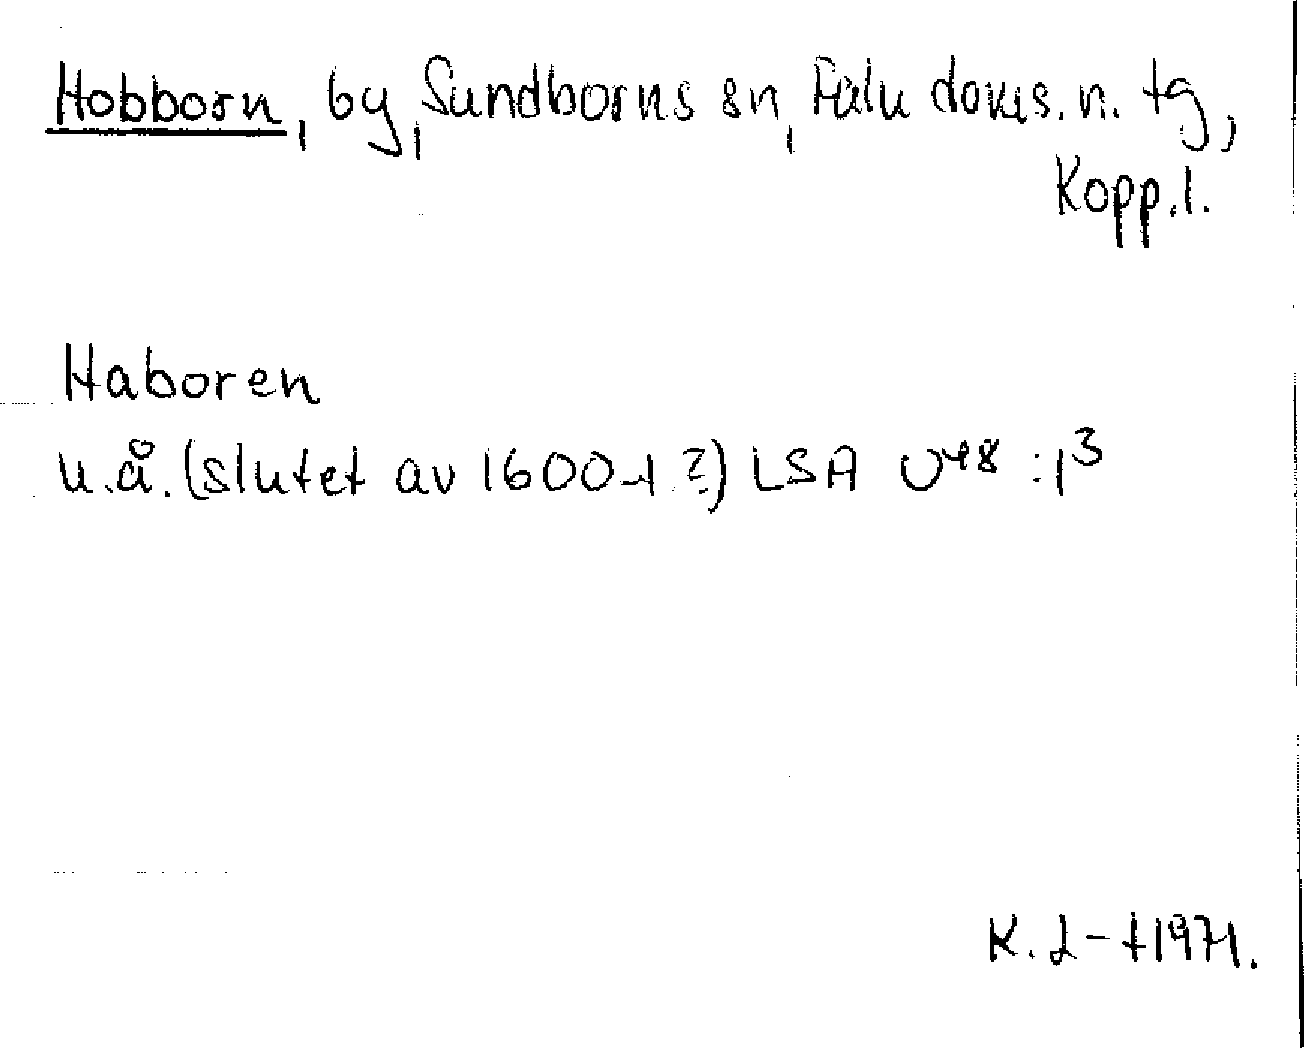 Hobborn, by, Sundborns sn, Falu doms. n. tg,
Kopp. l.
Haboren
u.å. (slutet av 1600-t ?) LSA U48 :1³
K. L-t 1971.